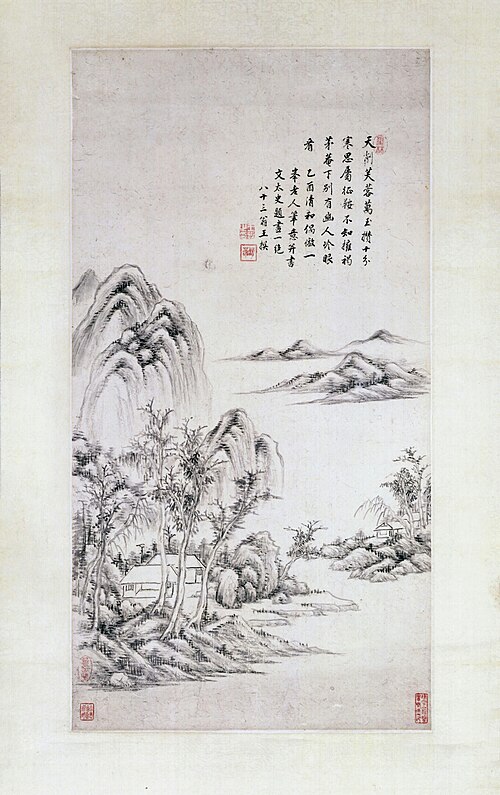 天削芙蓉萬玉攢十分
寒思屬征鞍不知擁褐
茅菴下別有幽人冷眼
看 乙酉清和偶倣一
峯老人筆意并書
文太史題畫一絕
八十三翁王撰